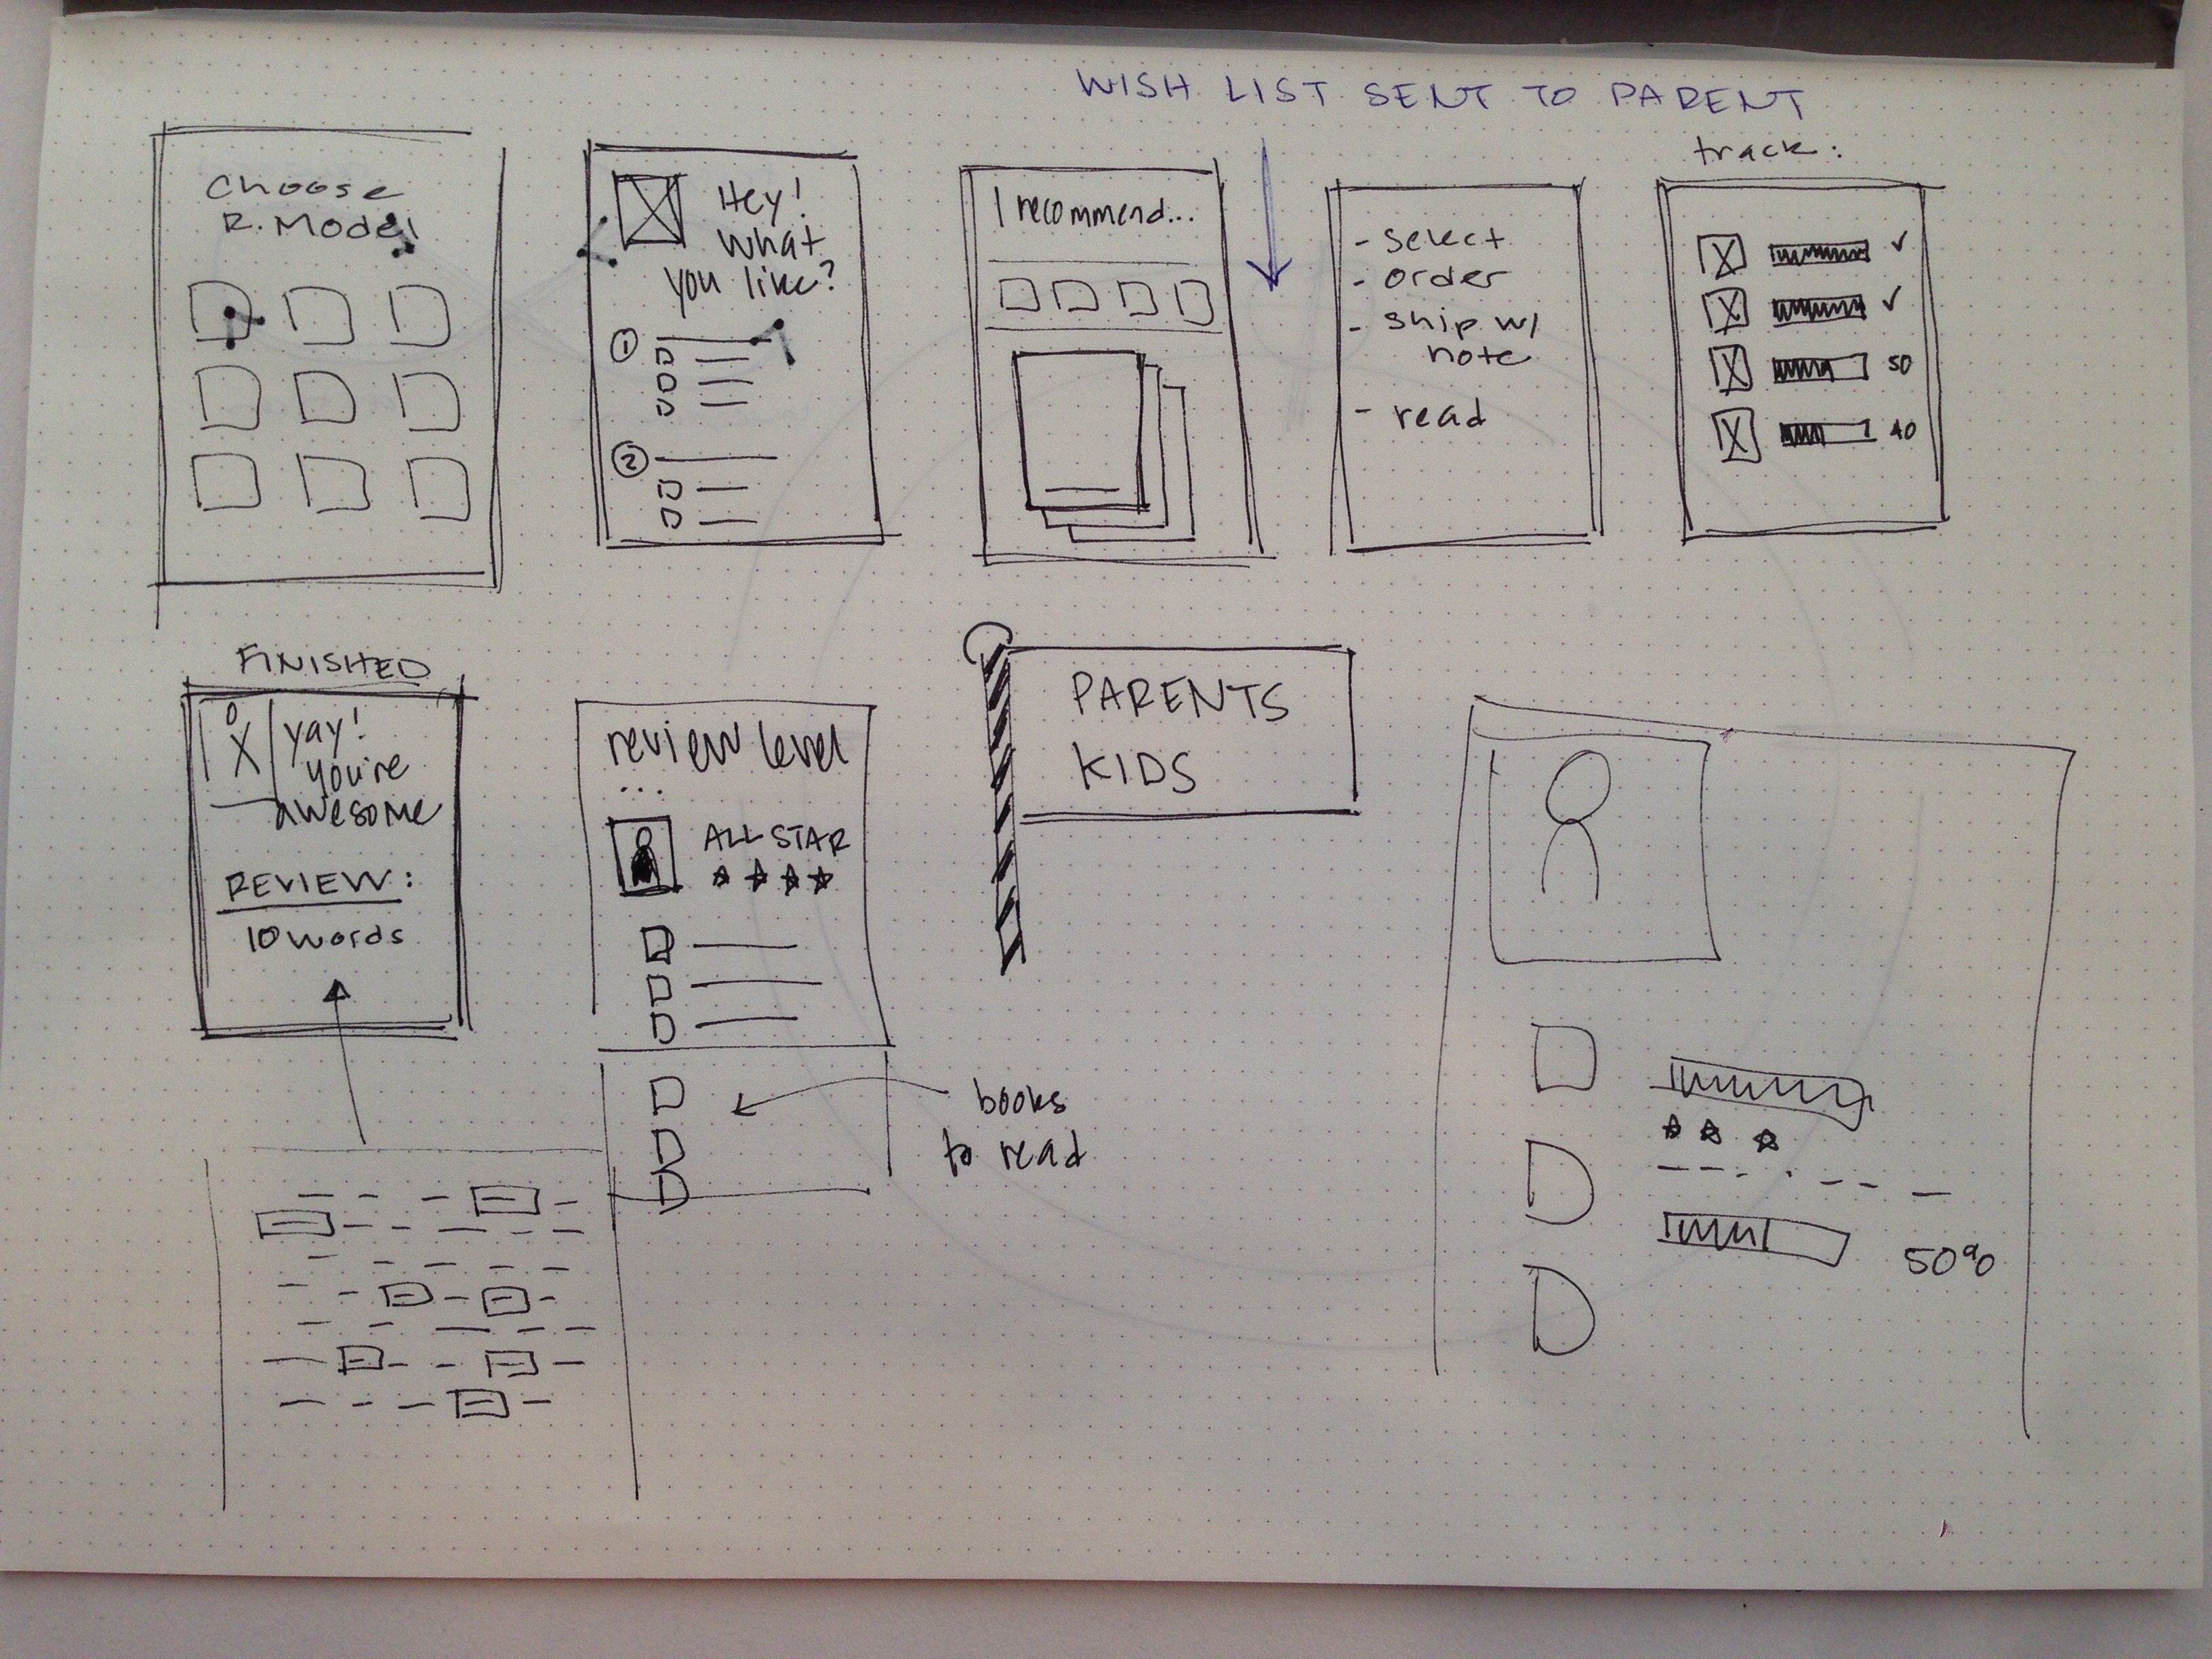 WISH LIST SENT TO PARENT
choose
R. Model
Hey!
what
you like?
1
2
I recommend...
- select
- order
- ship w/
note
- read
track:
50
40
FINISHED
yay!
you're
awesome
REVIEW:
10 words
review level
...
ALL STAR
books
to read
PARENTS
KIDS
50%